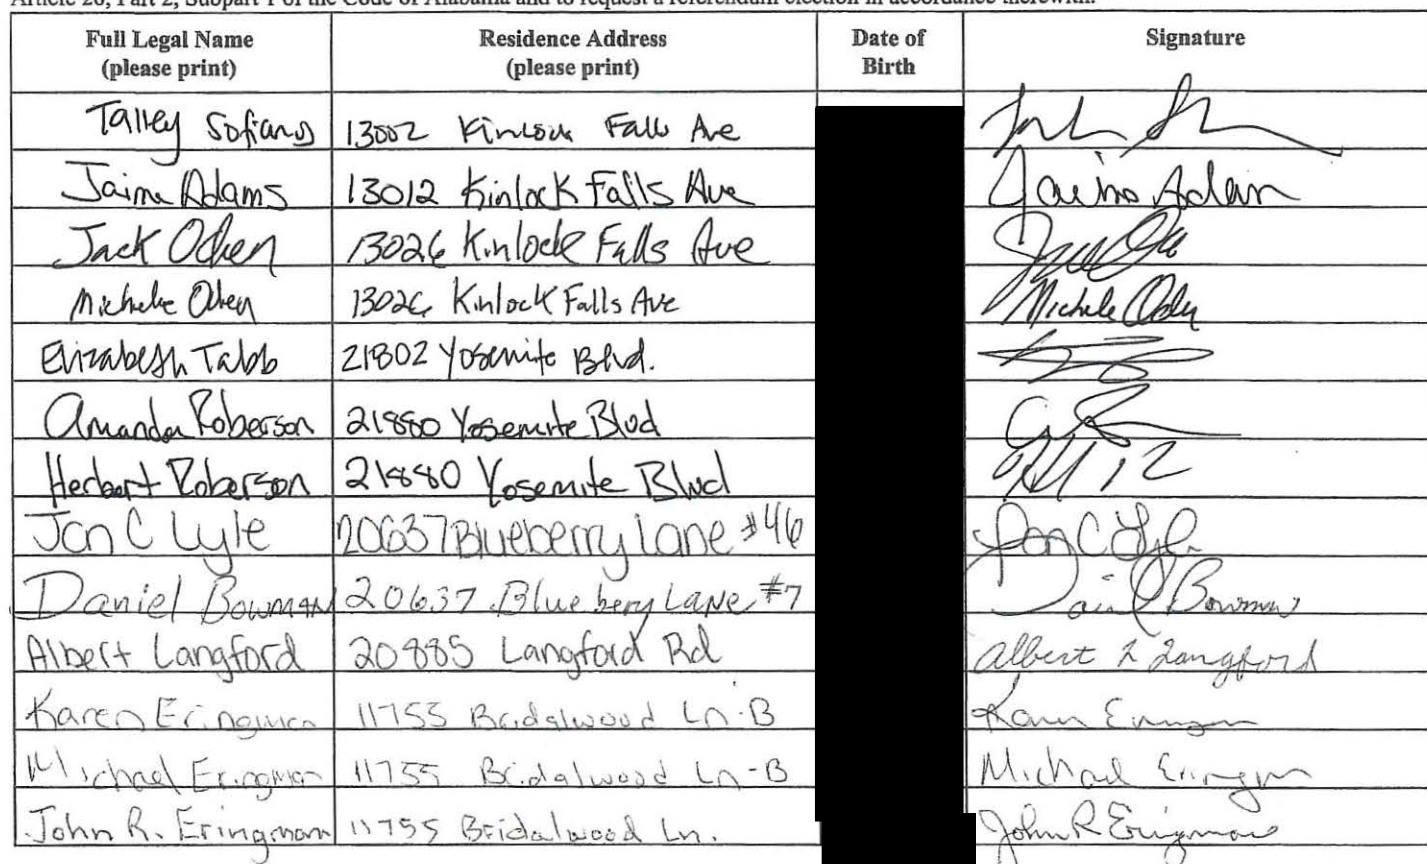 Article 26, Part 2, Subpart 1 of the Code of Alabama and to request a referendum election in accordance therewith.
Full Legal Name (please print) Residence Address (please print) Date of Birth Signature
Talley Sofianos 13002 Kinlock Falls Ave
Jaime Adams 13012 Kinlock Falls Ave Jaime Adam
Jack Oden 13026 Kinlock Falls Ave
Michele Oden 13026 Kinlock Falls Ave Michele Oden
Elizabeth Tabb 21802 Yosemite Blvd.
Amanda Roberson 21880 Yosemite Blvd
Herbert Roberson 21880 Yosemite Blvd
Jon C Lyle 20637 Blueberry Lane #46 Jon C Lyle
Daniel Bowman 20637 Blueberry Lane #7 Daniel Bowman
Albert Langford 20885 Langford Rd Albert L Langford
Karen Eringman 11755 Bridalwood Ln-B Karen Eringman
Michael Eringman 11755 Bridalwood Ln-B Michael Eringman
John R. Eringman 11755 Bridalwood Ln. John R Eringman